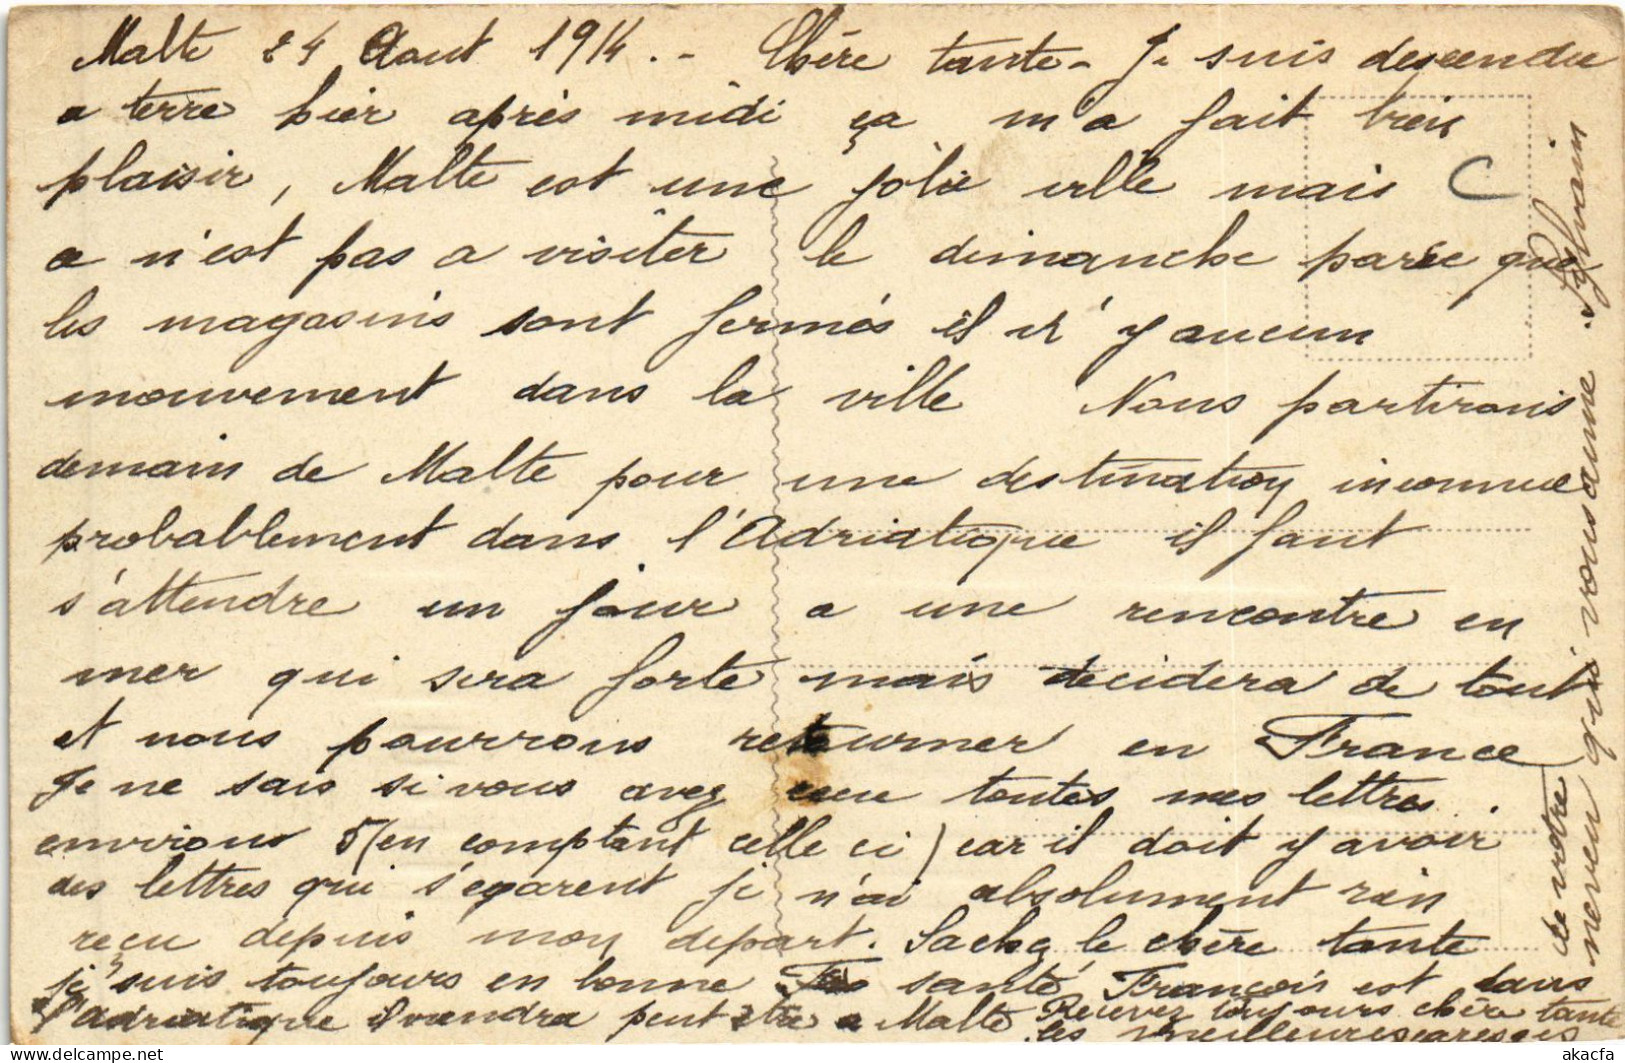 Malte 24 Aout 1914. - Chère tante - Je suis descendu
a terre hier après midi ça m'a fait bien
plaisir, Malte est une jolie ville mais
a n'est pas a visiter le dimanche parce que
les magasins sont fermés il n' y aucun
mouvement dans la ville Nous partirons
demain de Malte pour une destination inconnue
probablement dans l'Adriatique il faut
s'attendre un jour a une rencontre en
mer qui sera forte mais decidera de tout
et nous pourrons retourner en France
Je ne sais si vous avez eu toutes mes lettres.
environs 5 (en comptant celle ci) car il doit y avoir
des lettres qui s'egarent je n'ai absolument rien
reçu depuis mon depart. Sachez le chère tante
je suis toujours en bonne santé, François est dans
l'adriatique il viendra peut etre a Malte Recevez toujours chère tante
les meilleures caresses
de votre
neveu qui vous aime. Sylvain
C
akacfa